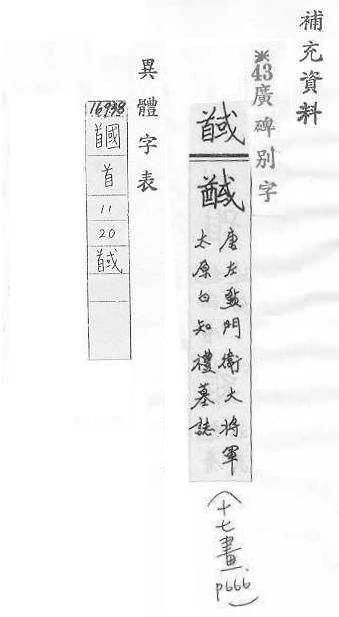 補充資料
※43廣碑別字
馘
唐左監門衛大將軍
太原白知禮墓誌
(十七畫.p666)
異體字表
首
11
20
馘